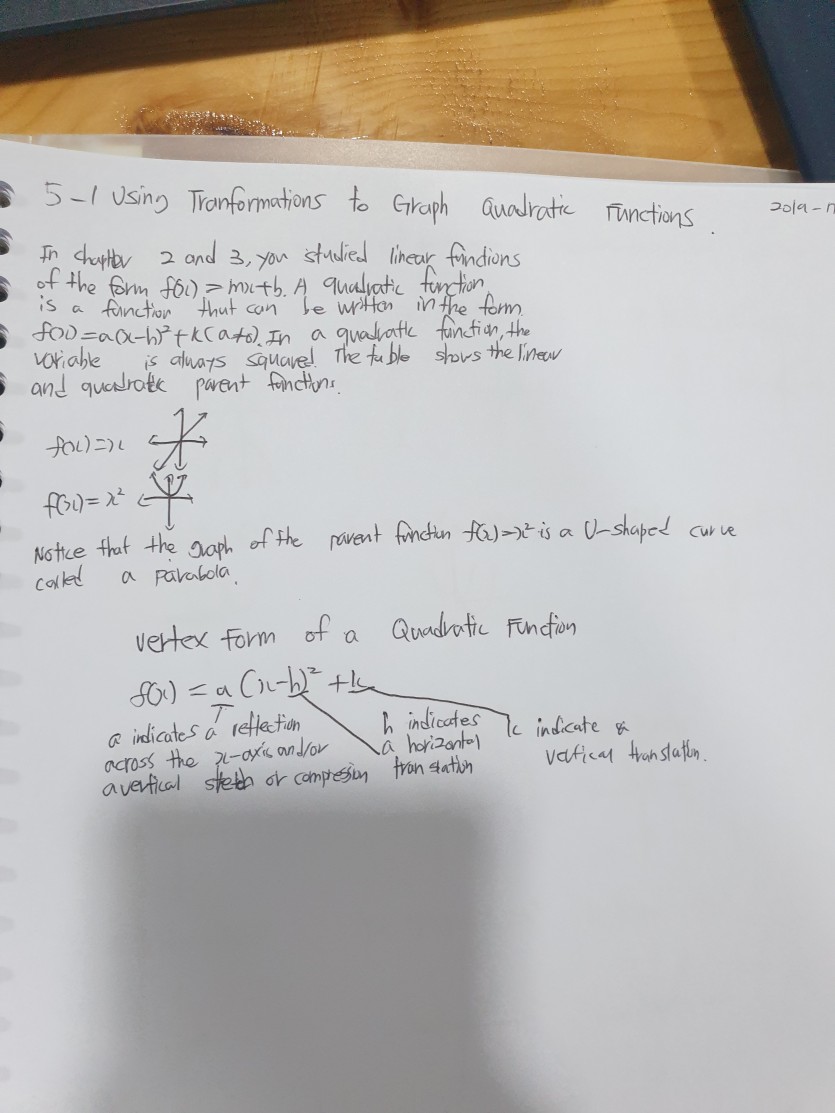 5-1 Using Tranformations to Graph Quadratic Functions.
2019-
In chapter 2 and 3, you studied linear functions
of the form f(x) = mx+b. A quadratic function
is a function that can be written in the form
f(x) = a(x-h)²+k(a≠0). In a quadratic function, the
variable is always squared. The table shows the linear
and quadratic parent functions.
f(x)=x
f(x)=x²
Notice that the graph of the parent function f(x)=x² is a U-shaped curve
called a parabola.
vertex Form of a Quadratic Function
f(x) = a (x-h)² + k
a indicates a reflection
across the x-axis and/or
a vertical or compression
h indicates
a horizontal
translation
k indicate a
vertical translation.